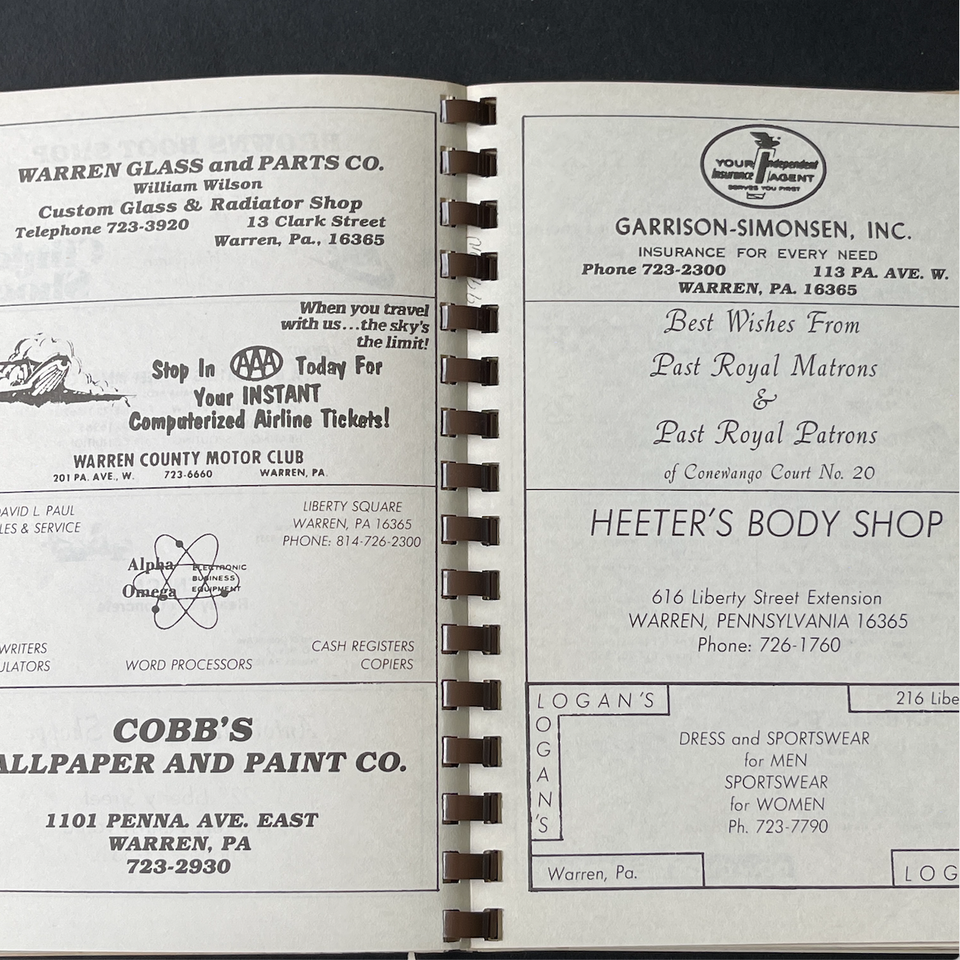 WARREN GLASS and PARTS CO.
William Wilson
Custom Glass & Radiator Shop
Telephone 723-3920 13 Clark Street
Warren, Pa., 16365
When you travel
with us...the sky's
the limit!
Stop In AAA Today For
Your INSTANT
Computerized Airline Tickets!
WARREN COUNTY MOTOR CLUB
201 PA. AVE., W. 723-6660 WARREN, PA.
AVID L. PAUL
LES & SERVICE
LIBERTY SQUARE
WARREN, PA 16365
PHONE: 814-726-2300
Alpha ELECTRONIC
BUSINESS
Omega EQUIPMENT
WRITERS
ULATORS
WORD PROCESSORS
CASH REGISTERS
COPIERS
COBB'S
ALLPAPER AND PAINT CO.
1101 PENNA. AVE. EAST
WARREN, PA
723-2930
YOUR Independent
Insurance AGENT
SERVES YOU FIRST
GARRISON-SIMONSEN, INC.
INSURANCE FOR EVERY NEED
Phone 723-2300 113 PA. AVE. W.
WARREN, PA. 16365
Best Wishes From
Past Royal Matrons
&
Past Royal Patrons
of Conewango Court No. 20
HEETER'S BODY SHOP
616 Liberty Street Extension
WARREN, PENNSYLVANIA 16365
Phone: 726-1760
LOGAN'S
216 Libe
LOGAN'S
DRESS and SPORTSWEAR
for MEN
SPORTSWEAR
for WOMEN
Ph. 723-7790
Warren, Pa.
LOG